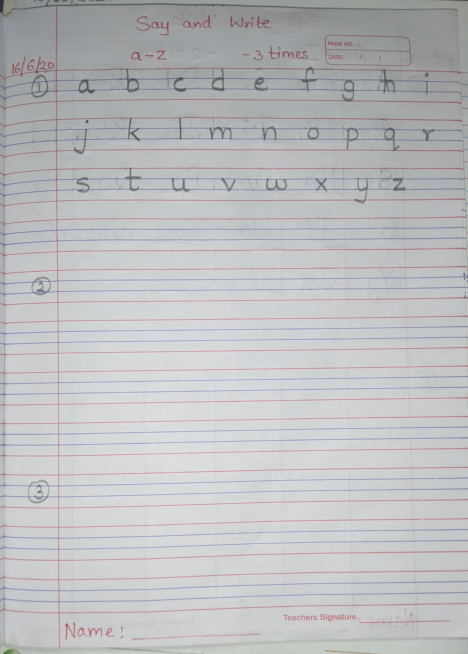 Say and Write
PAGE NO.
a-z -3 times
DATE: / /
16/6/20
① a b c d e f g h i
j k l m n o p q r
s t u v w x y z
②
③
Teachers Signature
Name: